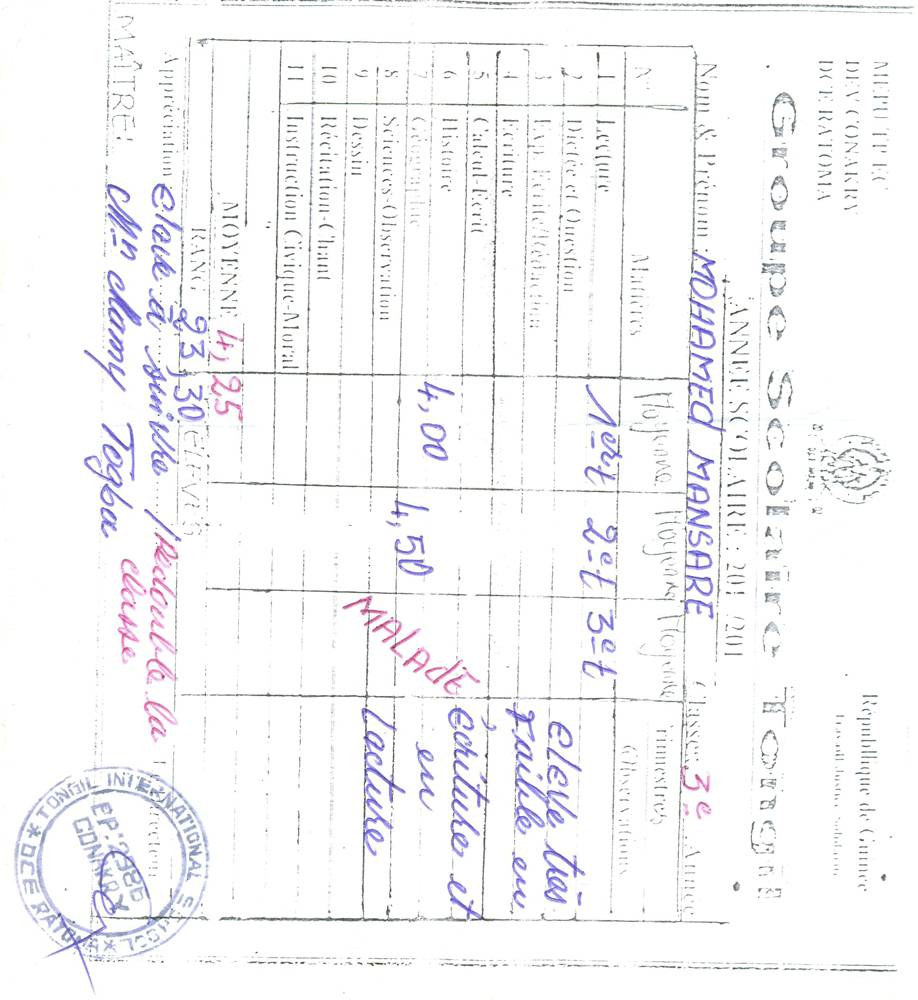 MEPU-T P EC
DEV CONAKRY
DCE RATOMA
République de Guinée
Travail-Justice-Solidarité
Groupe Scolaire Tongil
ANNEE SCOLAIRE : 201 /201
Nom & Prénom : MOHAMED MANSARE Classe: 3e Année
N° Matières Moyenne Moyenne Moyenne Trimestres Observations
1 Lecture 1ert 2et 3et
2 Dictée et Question
3 Exp. Ecrite/Rédaction
4 Ecriture
5 Calcul-Ecrit
6 Histoire
7 Géographie
8 Sciences-Observation
9 Dessin
10 Récitation-Chant
11 Instruction Civique-Moral
4,00
4,50
MALADE
eleve très
Faible en
Écriture et
en
Lacture
MOYENNE 4,25
RANG 23,30 ELEVES
Appréciation eleve à suivre / Redouble la
classe
MAÎTRE: Mr Mamy Togba
TONGIL INTERNATIONAL SCHOOL
BP: 2986
CONAKRY
DCE RATOMA